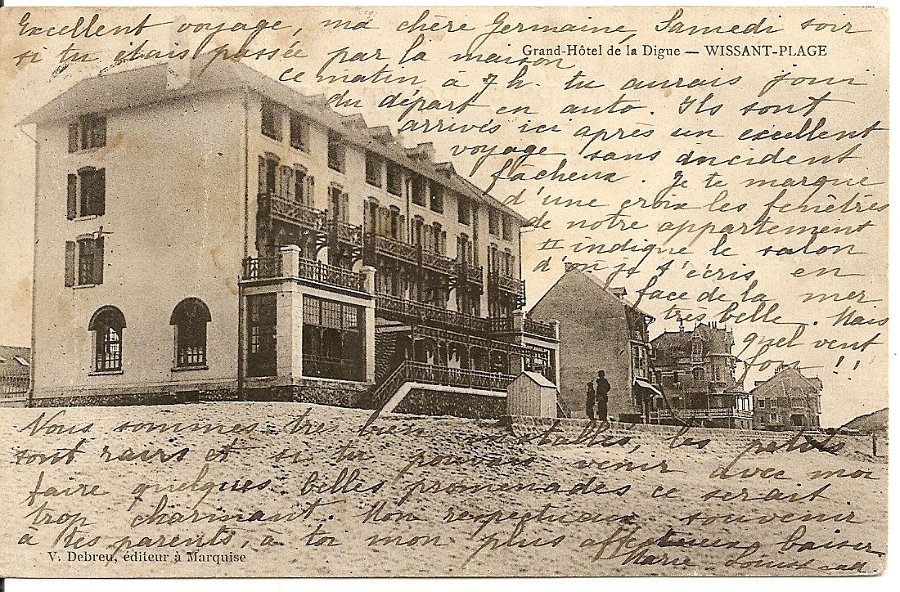 Excellent voyage, ma chère Germaine, Samedi soir
si tu étais passée par la maison
Grand-Hôtel de la Digue — WISSANT-PLAGE
ce matin à 7h. tu aurais joui
du départ en auto. Ils sont
arrivés ici après un excellent
voyage sans incident
facheux. Je te marque
d'une croix les fenêtres
de notre appartement
II indique le salon
d'où je t'écris en
face de la mer
très belle. Mais
quel vent
fou !!
Nous sommes très bien installés, les petits
sont ravis et si tu pouvais venir avec moi
faire quelques belles promenades ce serait
trop charmant. Mon respectueux souvenir
à tes parents, à toi mon plus affectueux baiser
Marie-Louise
V. Debreu, éditeur à Marquise